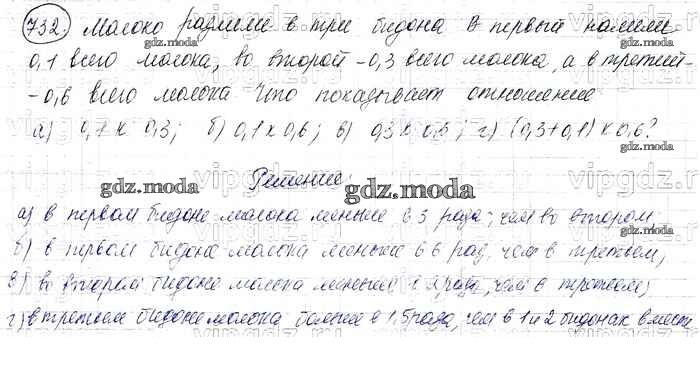 732. Молоко разлили в три бидона В первый налили
0,1 всего молока, во второй - 0,3 всего молока, а в третий -
- 0,6 всего молока Что показывает отношение
а) 0,1 к 0,3; б) 0,1 к 0,6; в) 0,3 к 0,6; г) (0,3+0,1) к 0,6?
Решение:
а) в первом бидоне молока меньше в 3 раза, чем во втором
б) в первом бидоне молока меньше в 6 раз, чем в третьем,
в) во втором бидоне молока меньше в 2 раза, чем в третьем,
г) в третьем бидоне молока больше в 1,5 раза, чем в 1 и 2 бидонах вместе
gdz.moda
gdz.moda
gdz.moda
gdz.moda
gdz.moda
gdz.moda
gdz.moda